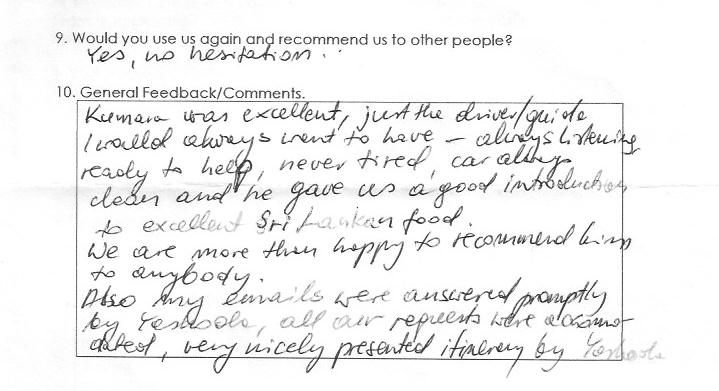 9. Would you use us again and recommend us to other people?
Yes, no hesitation.
10. General Feedback/Comments.
Kumara was excellent, just the driver/guide
I would always want to have – always listening,
ready to help, never tired, car always
clean and he gave us a good introduction
to excellent Sri Lankan food.
We are more than happy to recommend him
to anybody.
Also my emails were answered promptly
by Yashoda, all our requests were accomo-
dated, very nicely presented itinerary by Yashoda